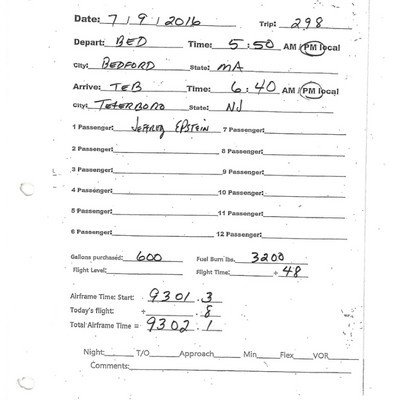 Date: 7/9/2016 Trip: 298
Depart: BED Time: 5:50 AM / PM local
City: BEDFORD State: MA
Arrive: TEB Time: 6:40 AM / PM local
City: TETERBORO State: NJ
1 Passenger: JEFFREY EPSTEIN 7 Passenger:
2 Passenger: 8 Passenger:
3 Passenger: 9 Passenger:
4 Passenger: 10 Passenger:
5 Passenger: 11 Passenger:
6 Passenger: 12 Passenger:
Gallons purchased: 600 Fuel Burn lbs. 3200
Flight Level: Flight Time: + 48
Airframe Time: Start: 9301.3
Today's flight: + .8
Total Airframe Time = 9302.1
Night: T/O Approach Min Flex VOR
Comments: